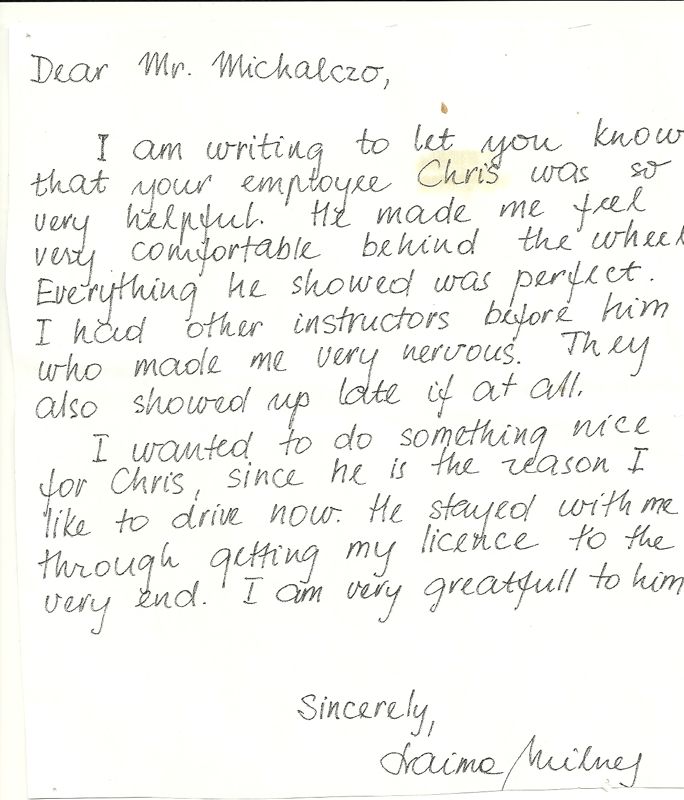 Dear Mr. Michalczo,
I am writing to let you know
that your employee Chris was so
very helpful. He made me feel
very comfortable behind the wheel
Everything he showed was perfect.
I had other instructors before him
who made me very nervous. They
also showed up late if at all.
I wanted to do something nice
for Chris, since he is the reason I
like to drive now. He stayed with me
through getting my licence to the
very end. I am very greatfull to him
Sincerely,
Laima